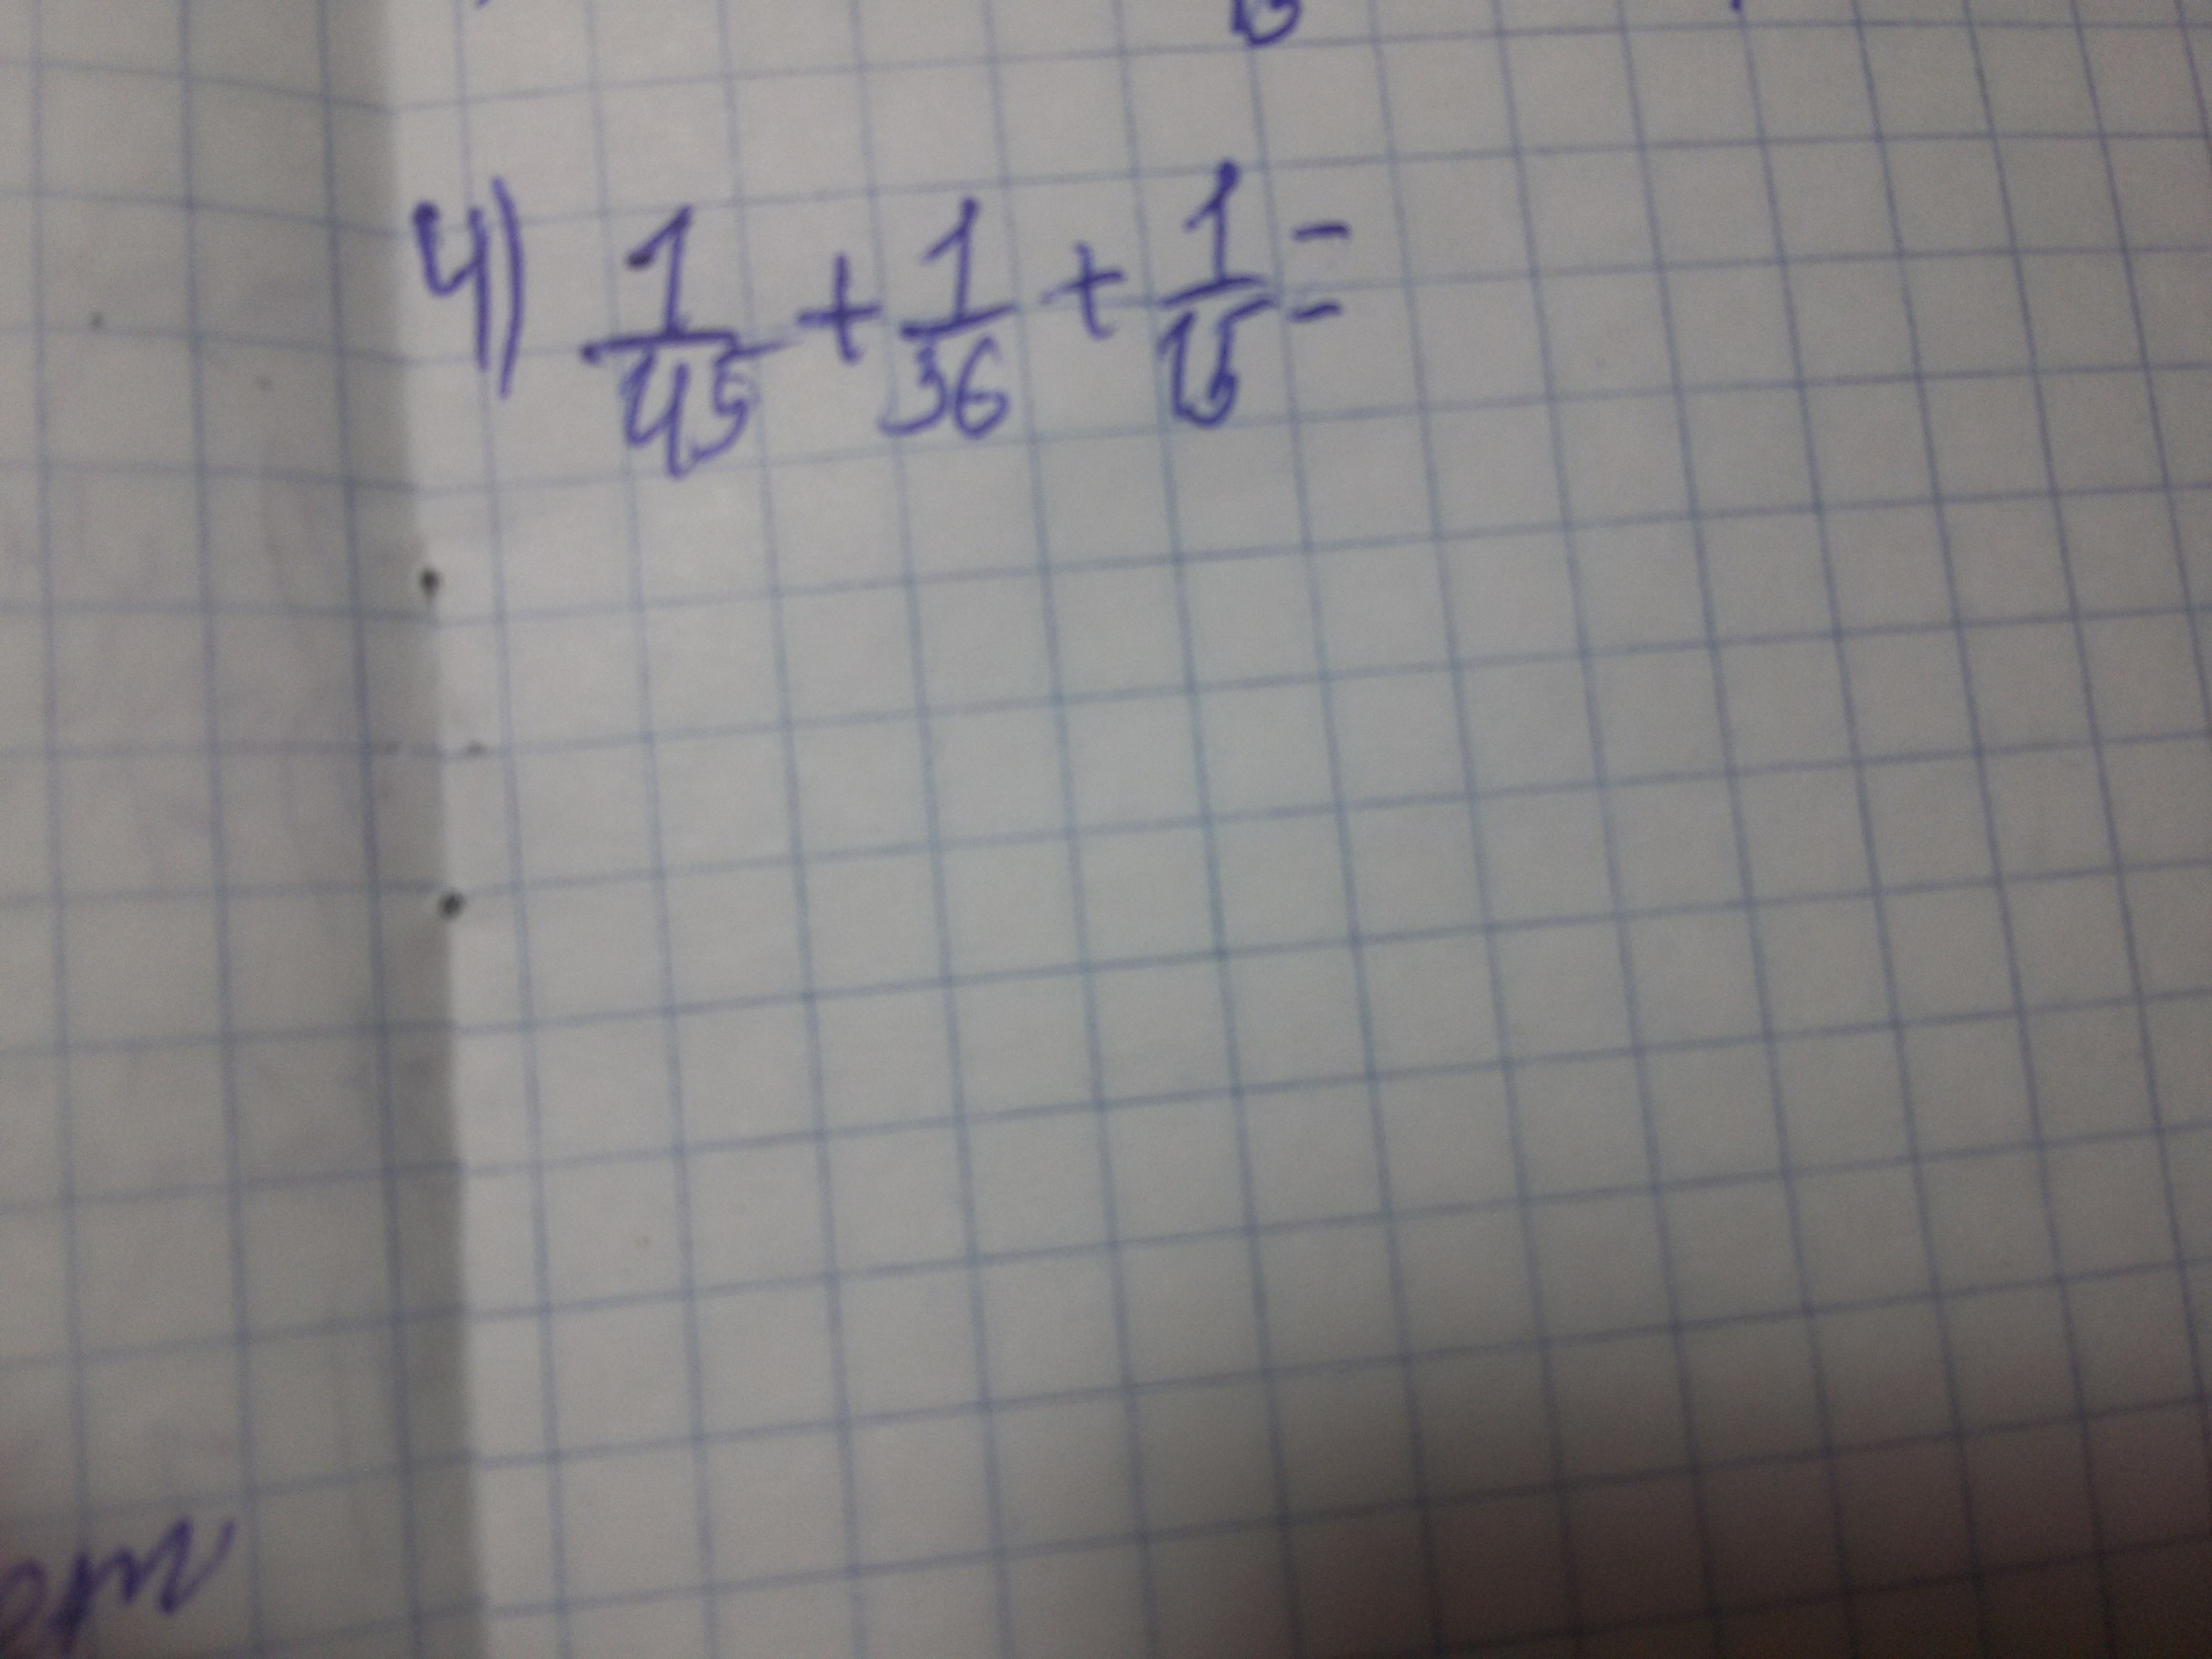 4) 1/45 + 1/36 + 1/15 =